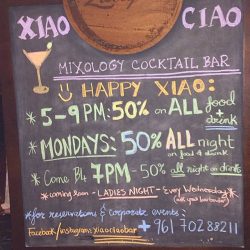 XIAO CIAO
MIXOLOGY COCKTAIL BAR
HAPPY XIAO:
* 5-9 PM: 50% on ALL food + drink
* MONDAYS: 50% ALL night
on food & drink
* Come By 7PM - 50% all night on drinks
* coming soon - LADIES NIGHT - Every Wednesday *
* for reservations & corporate events:
Facebook/instagram: xiaociaobar + 961 70288211